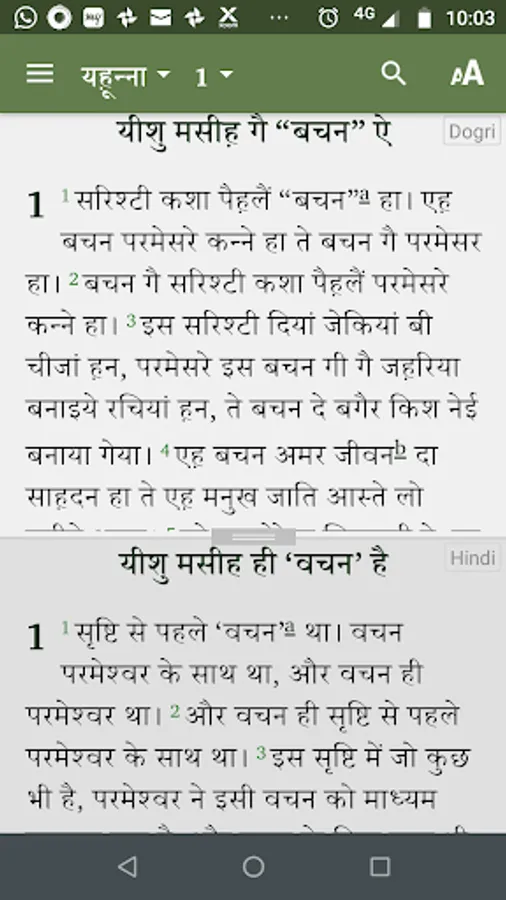 4G 10:03
यहून्ना 1 AA
यीशु मसीह़ गै “बचन” ऐ
Dogri
1 1 सरिश्टी कशा पैह़लैं “बचन”a हा। एह़
बचन परमेसरे कन्ने हा ते बचन गै परमेसर
हा। 2 बचन गै सरिश्टी कशा पैह़लैं परमेसरे
कन्ने हा। 3 इस सरिश्टी दियां जेकियां बी
चीजां ह़न, परमेसरे इस बचन गी गै जह़रिया
बनाइये रचियां ह़न, ते बचन दे बगैर किश नेई
बनाया गेया। 4 एह़ बचन अमर जीवनb दा
साह़दन हा ते एह़ मनुख जाति आस्ते लो
यीशु मसीह ही ‘वचन’ है
Hindi
1 1 सृष्टि से पहले ‘वचन’a था। वचन
परमेश्वर के साथ था, और वचन ही
परमेश्वर था। 2 और वचन ही सृष्टि से पहले
परमेश्वर के साथ था। 3 इस सृष्टि में जो कुछ
भी है, परमेश्वर ने इसी वचन को माध्यम